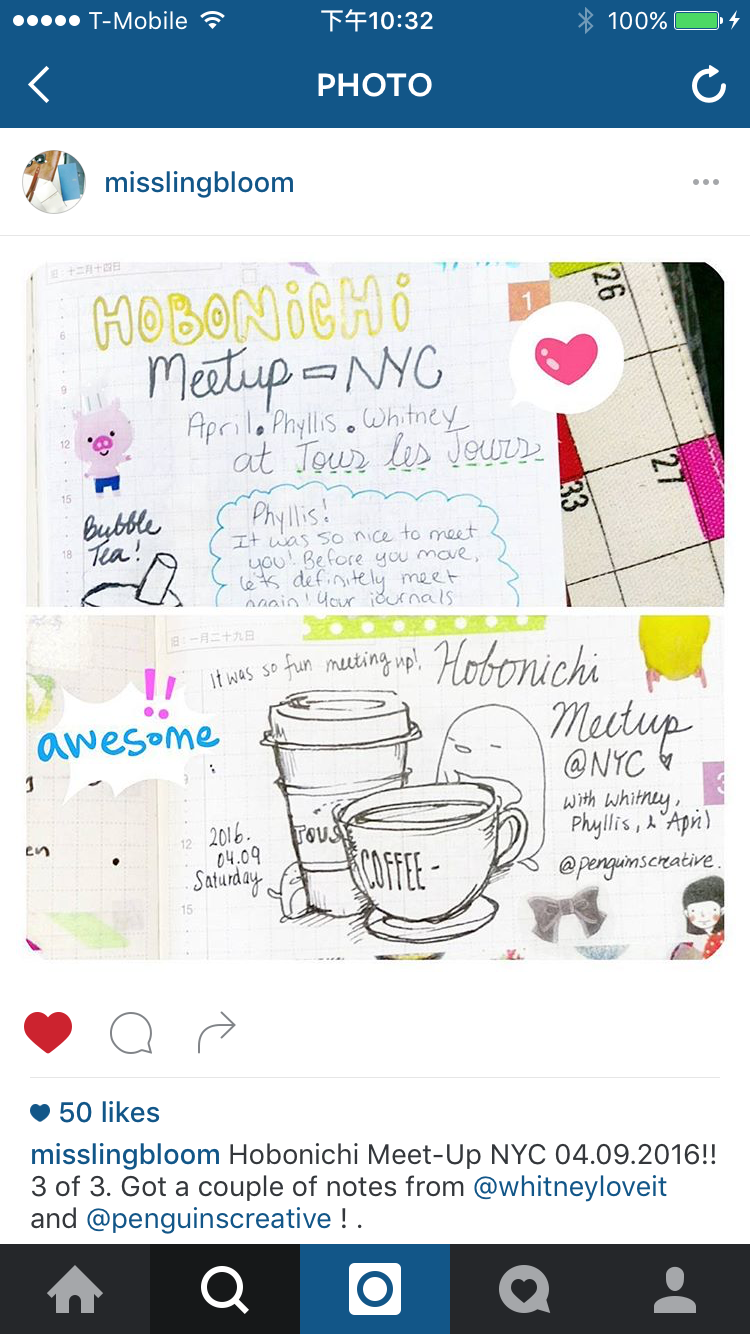 T-Mobile 下午10:32 100%
PHOTO
misslingbloom
十二月十四日
HOBONiCHi
Meetup - NYC
April. Phyllis. Whitney
at Tous les Jours
Bubble
Tea!
Phyllis!
It was so nice to meet
you! Before you move,
let's definitely meet
again! Your journals
6
9
12
15
18
1
26
27
33
旧:一月二十九日
It was so fun meeting up! Hobonichi
Meetup
@NYC
with Whitney,
Phyllis, & April
@penguinscreative.
!!
awesome
2016.
04.09
Saturday
TOUS
COFFEE-
en
9
12
15
3
50 likes
misslingbloom Hobonichi Meet-Up NYC 04.09.2016!!
3 of 3. Got a couple of notes from @whitneyloveit
and @penguinscreative ! .